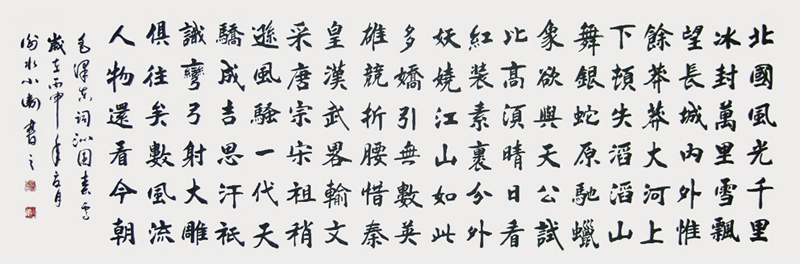 北國風光千里
冰封萬里雪飄
望長城內外惟
餘莽莽大河上
下頓失滔滔山
舞銀蛇原馳蠟
象欲與天公試
比高須晴日看
紅裝素裹分外
妖嬈江山如此
多嬌引無數英
雄競折腰惜秦
皇漢武畧輸文
采唐宗宋祖稍
遜風騷一代天
驕成吉思汗祇
識彎弓射大雕
俱往矣數風流
人物還看今朝
毛澤東詞沁園春雪
歲在丙申年月
水小書之